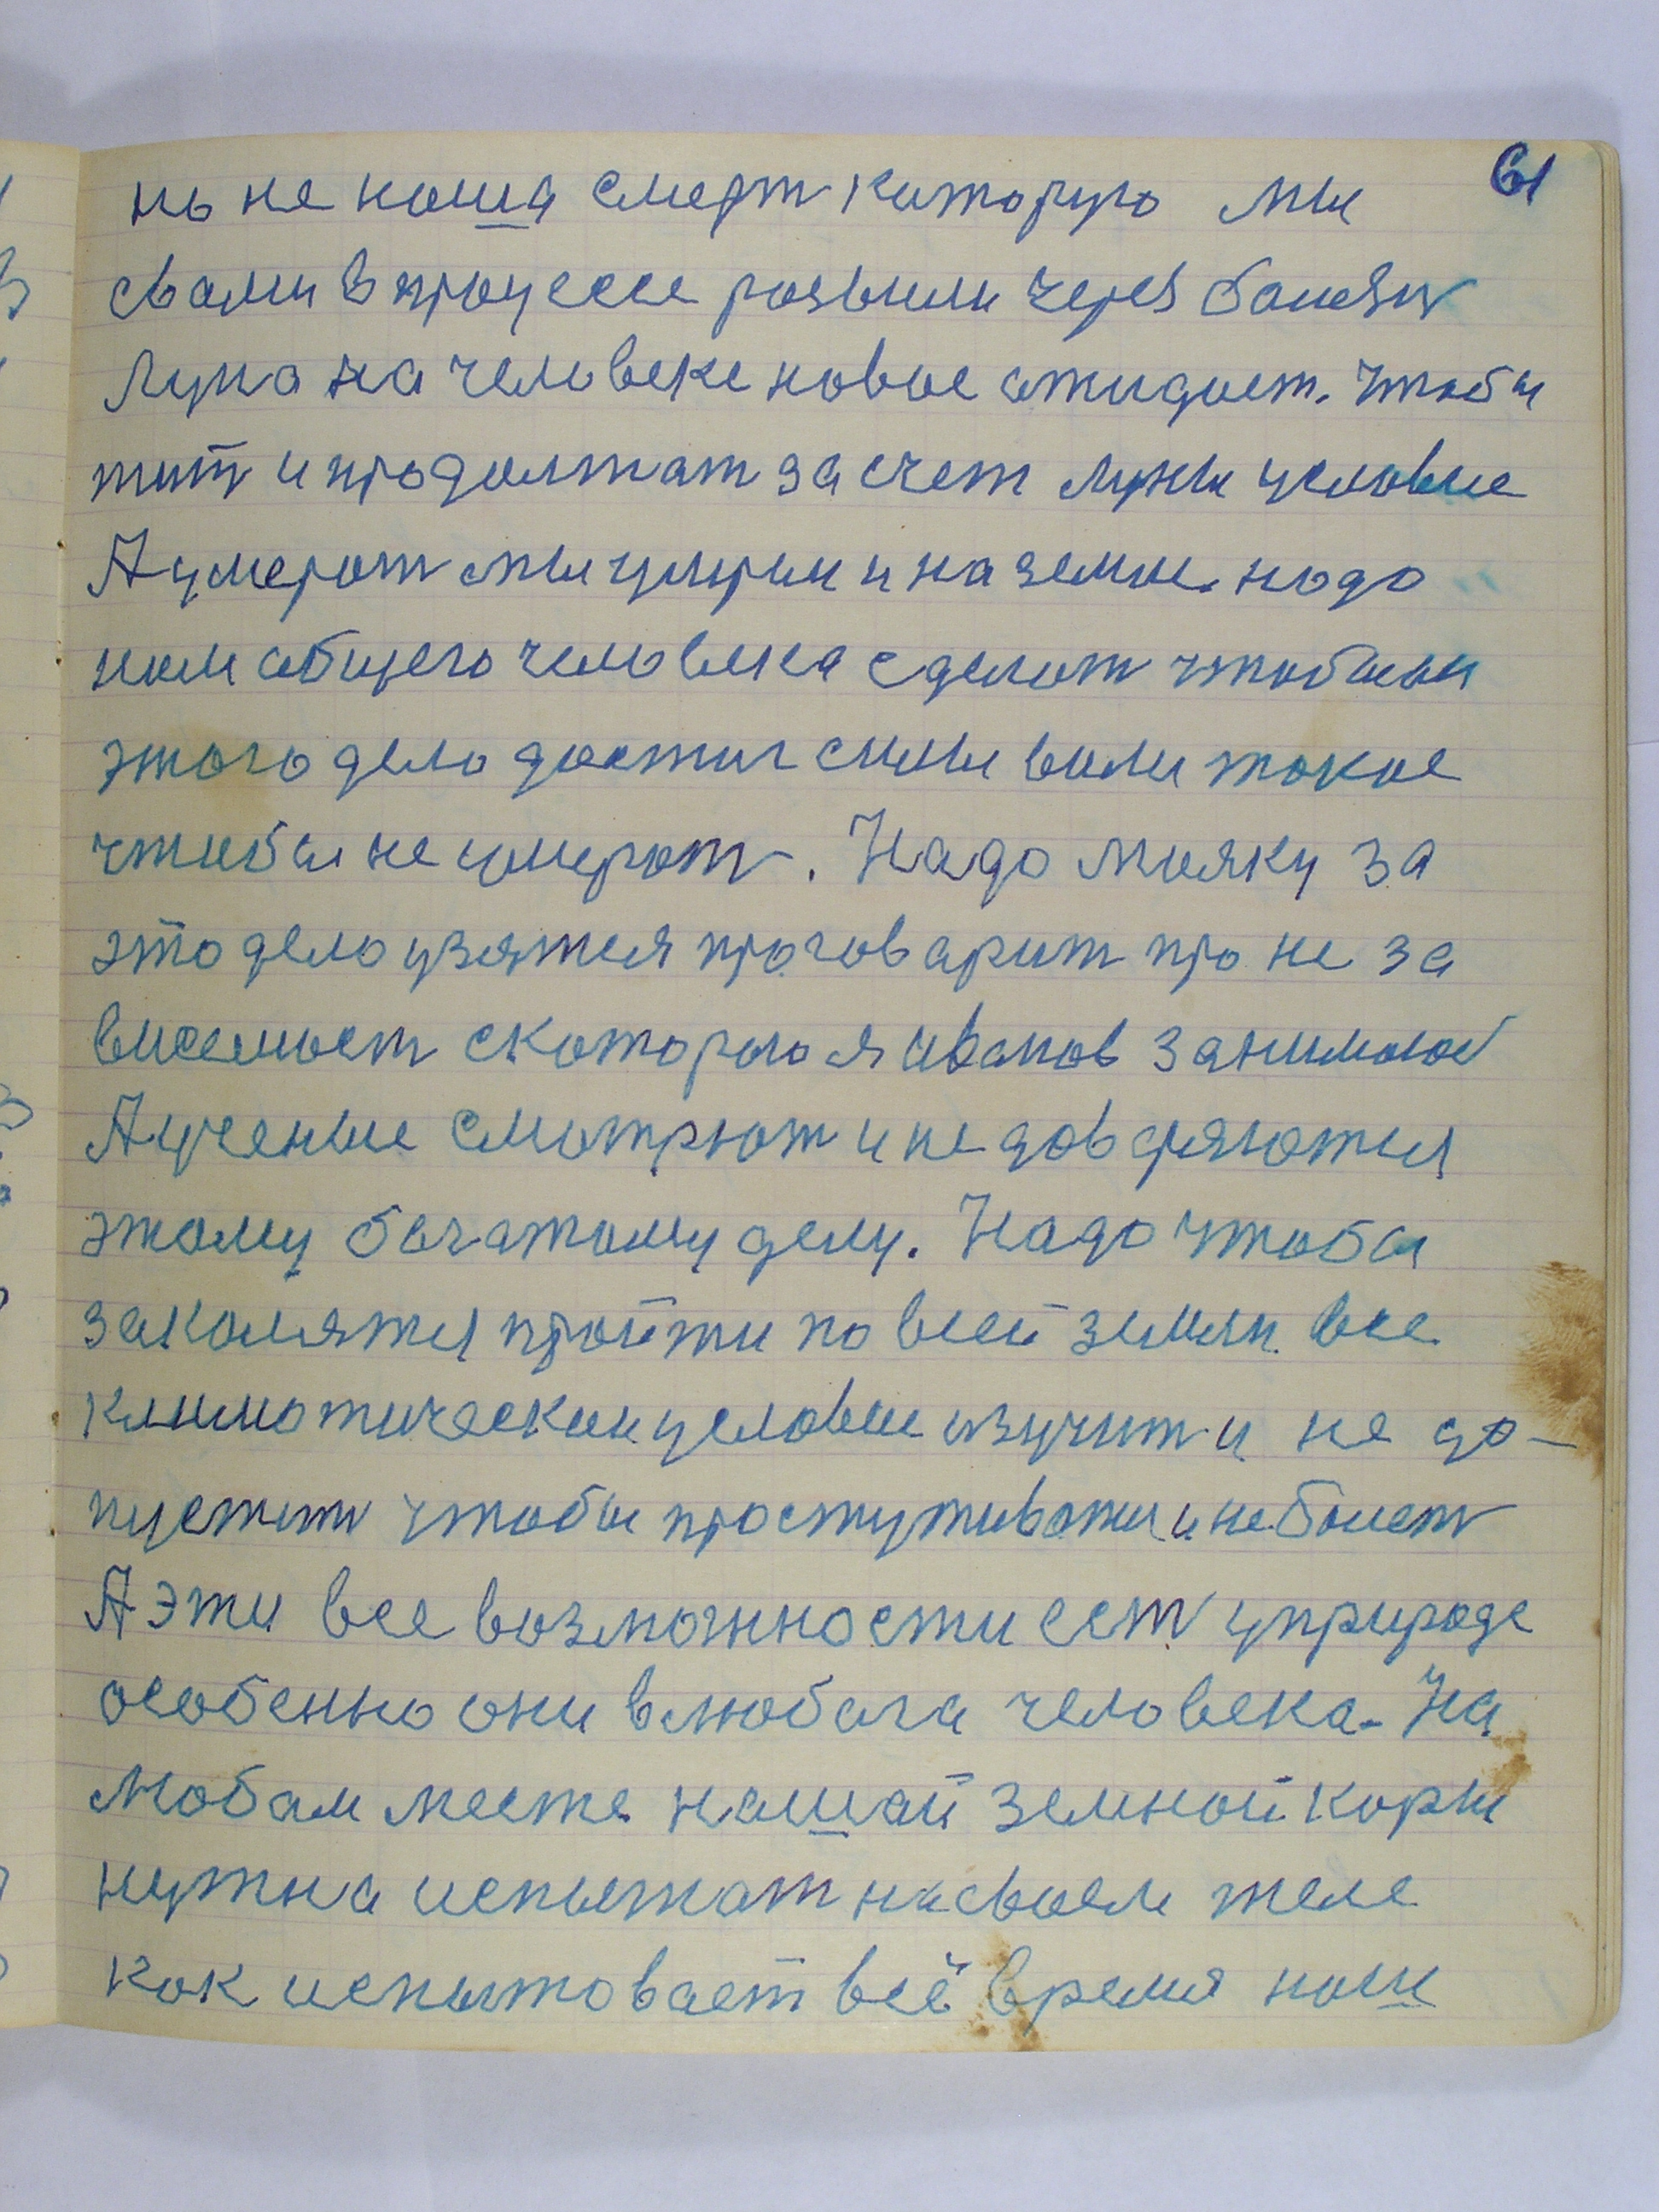 61
нь не наша смерт каторую мы
свами в процессе развили через балезн
Луна на человеке новое ажидает. Чтобы
жит и продолжат за счет луны условие
А умерат мы умрем и на земле. надо
нам общего человека сделат чтобы он
этого дело достиг силы воли такое
чтобы не умерат. Надо маяку за
это дело узятся проговарит про не за
висемаст скоторою я иванов занимаюс
А ученые смотрют и не доверяются
этому богатому делу. Надо чтобы
закалятся пройти по всей земли. все
климатически условие изучит и не до-
пустит чтобы простуживатся и не болет
А эти все возможности ест у природе
особенно они в любога человека. На
любом месте нашай земной коры
нужна испытат на своем теле
как испытовает всё время наш